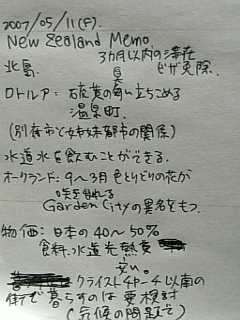 2007/05/11(F).
New Zealand Memo
3カ月以内の滞在
ビザ免除.
北島
ロトルア: 硫黄の匂い立ちこめる
温泉町.
(別府市と姉妹都市の関係)
水道水を飲むことができる.
オークランド: 9〜3月 色とりどりの花が
咲き乱れる
Garden Cityの異名をもつ.
物価: 日本の40〜50%
食料、水道光熱費
安い。
クライストチャーチ以南の
街で暮らすのは要検討
(気候の問題で)